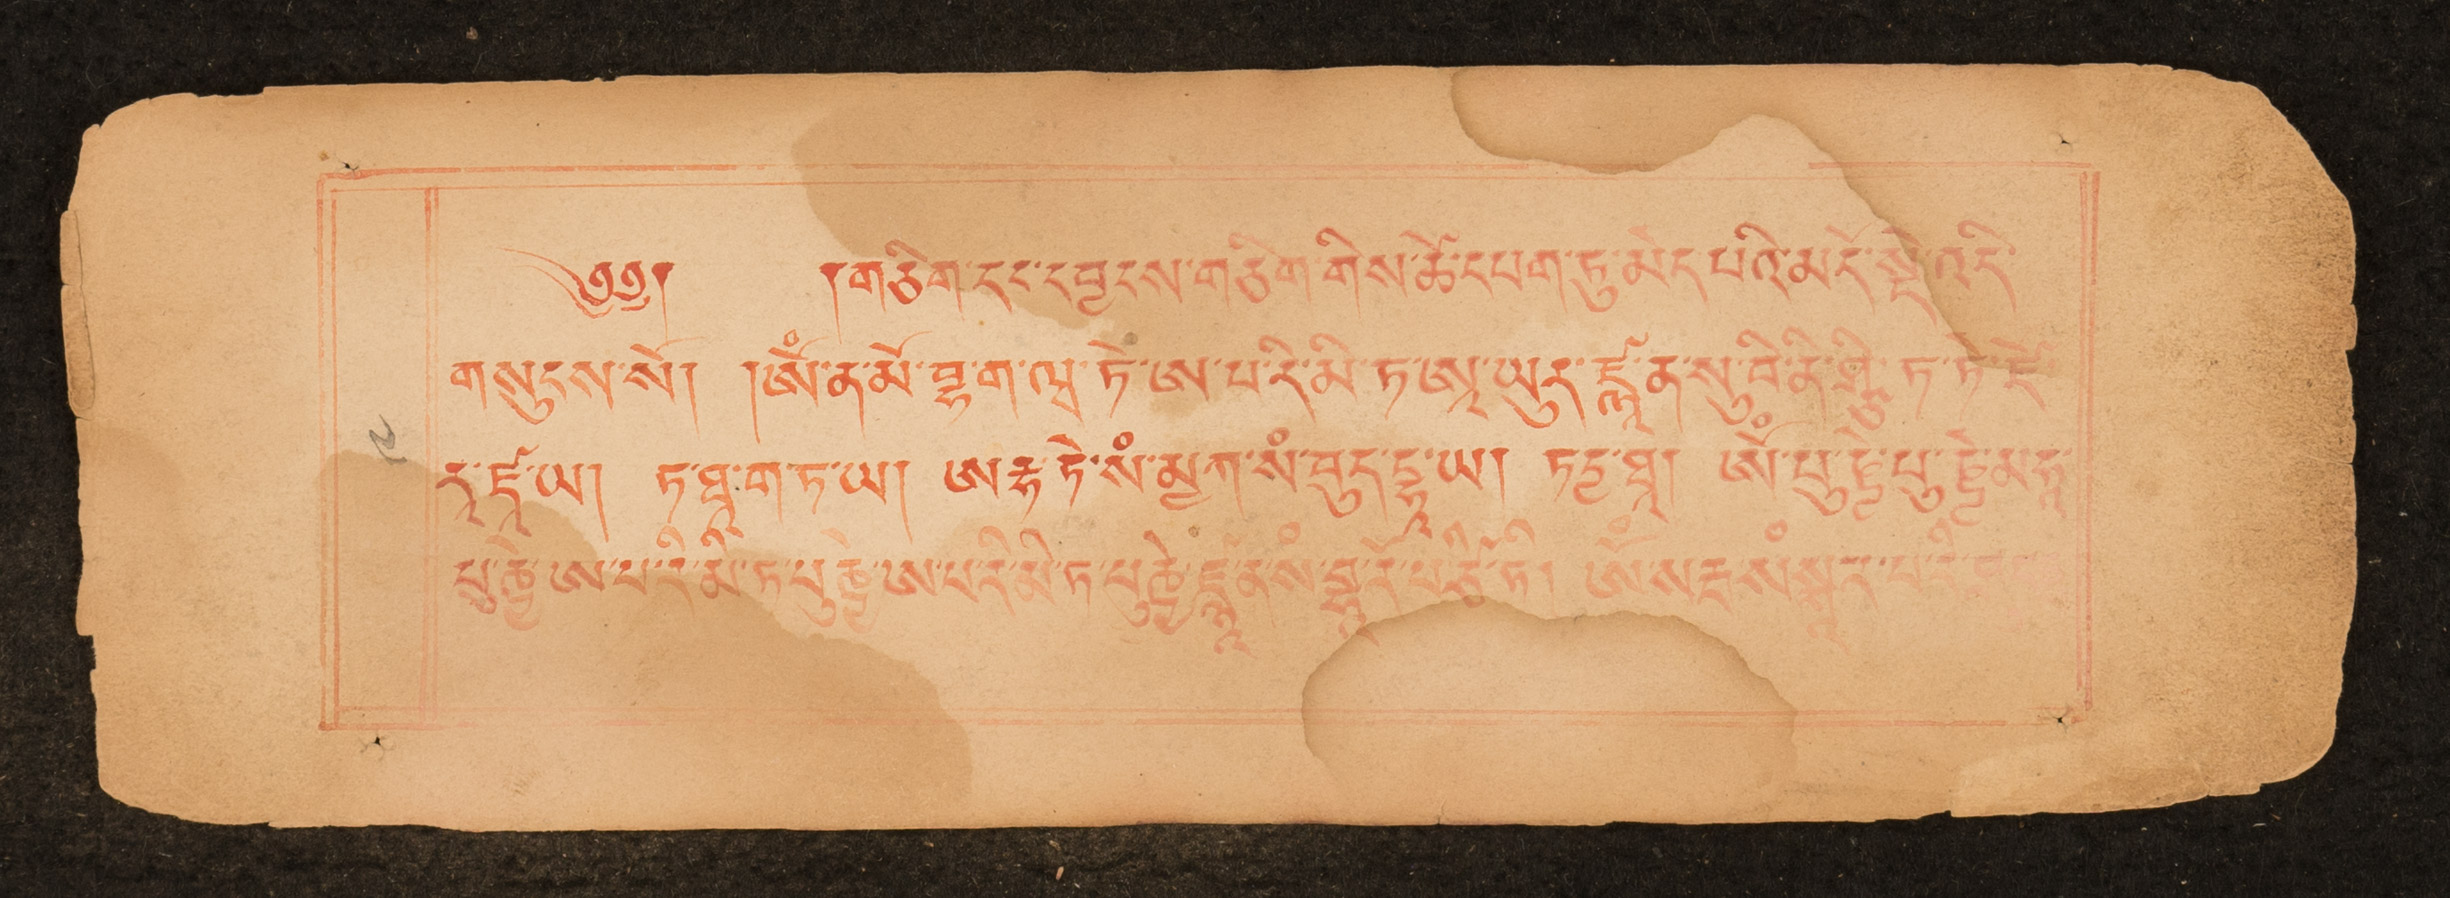 ༄༅། །གཅིག་དང་ད་བྱངས་གཅིག་གིས་ཚེ་དཔག་ཏུ་མེད་པའི་མདོ་སྡེ་འདི་
གསུངས་སོ། །ཨོཾ་ན་མོ་བྷ་ག་ཝ་ཏེ་ཨ་པ་རི་མི་ཏ་ཨཱ་ཡུར་ཛྙཱ་ན་སུ་བི་ནི་ཤྩི་ཏ་ཏེ་ཛོ་
རཱ་ཛཱ་ཡ། ཏ་ཐཱ་ག་ཏ་ཡ། ཨརྷ་ཏེ་སཾ་མྱཀ་སཾ་བུད་དྷཱ་ཡ། ཏདྱ་ཐཱ། ཨོཾ་པུ་ཎྱེ་པུ་ཎྱེ་མཧཱ་
པུ་ཎྱེ་ཨ་པ་རི་མི་ཏ་པུ་ཎྱེ་ཨ་པ་རི་མི་ཏ་པུ་ཎྱེ་ཛྙཱ་ན་སཾ་བྷཱ་རོ་པ་ཙི་ཏེ། ཨོཾ་སརྦ་སཾ་སྐཱ་ར་པ་རི་